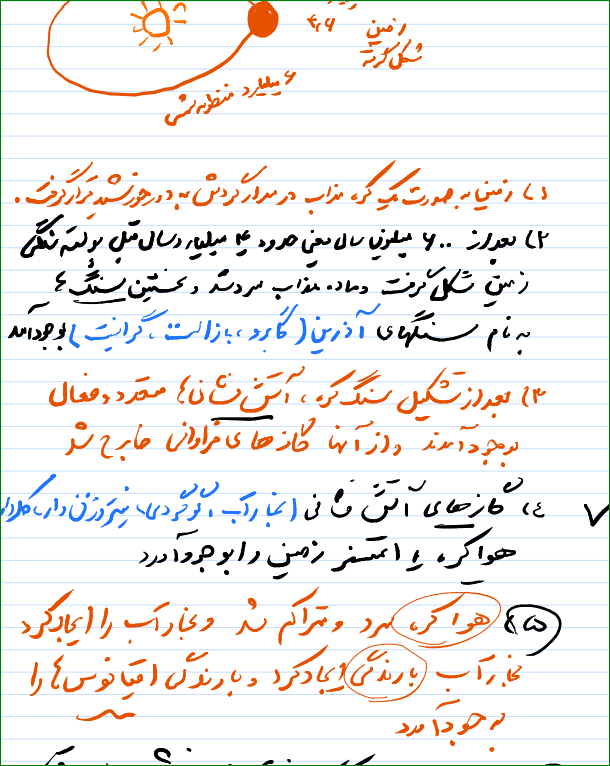 زمین ۴,۶
شکل گرفته
۶ میلیارد منظومه شمسی
۱) زمین به صورت یک کره مذاب در مدار گردش به دور خورشید قرار گرفت.
۲) بعد از ۶۰۰ میلیون سال یعنی حدود ۴ میلیارد سال قبل پوسته سنگی
زمین شکل گرفت و ماده مذاب سرد شد و نخستین سنگ ها
به نام سنگهای آذرین (گابرو، بازالت، گرانیت) بوجود آمد
۳) بعد از تشکیل سنگ کره، آتشفشانها متعدد و فعال
بوجود آمدند و از آنها گازهای فراوانی خارج شد
۴) گازهای آتش فشانی (بخار آب، گوگردی، نیتروژن دار، کلردار
هوا کره یا اتمسفر زمین را بوجود آورد
۵) هوا کره سرد و متراکم شد و بخار آب را ایجاد کرد
بخار آب بارندگی ایجاد کرد و بارندگی اقیانوس ها را
به وجود آورد